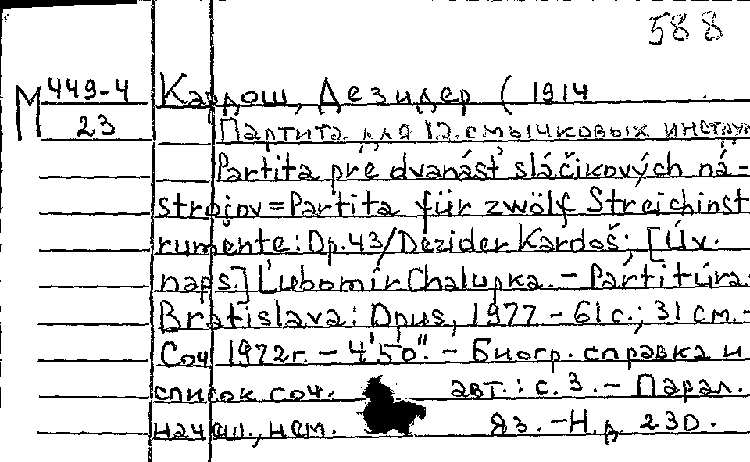 588
М 449-4 Кардош, Дезидер ( 1914
23 Партита для 12 смычковых инструм
Partita pre dvanásť sláčikových ná=
strojov=Partita für zwölf Streichinst
rumente: Op.43/Dezider Kardoš; [Úv.
naps.] Ľubomír Chalupka. - Partitúra.
Bratislava: Opus, 1977 - 61 с.; 31 см. -
Соч 1972г. - 4'50". - Биогр. справка и
список соч. авт.: с. 3. - Парал.
нем. яз. - Н.д. 230.